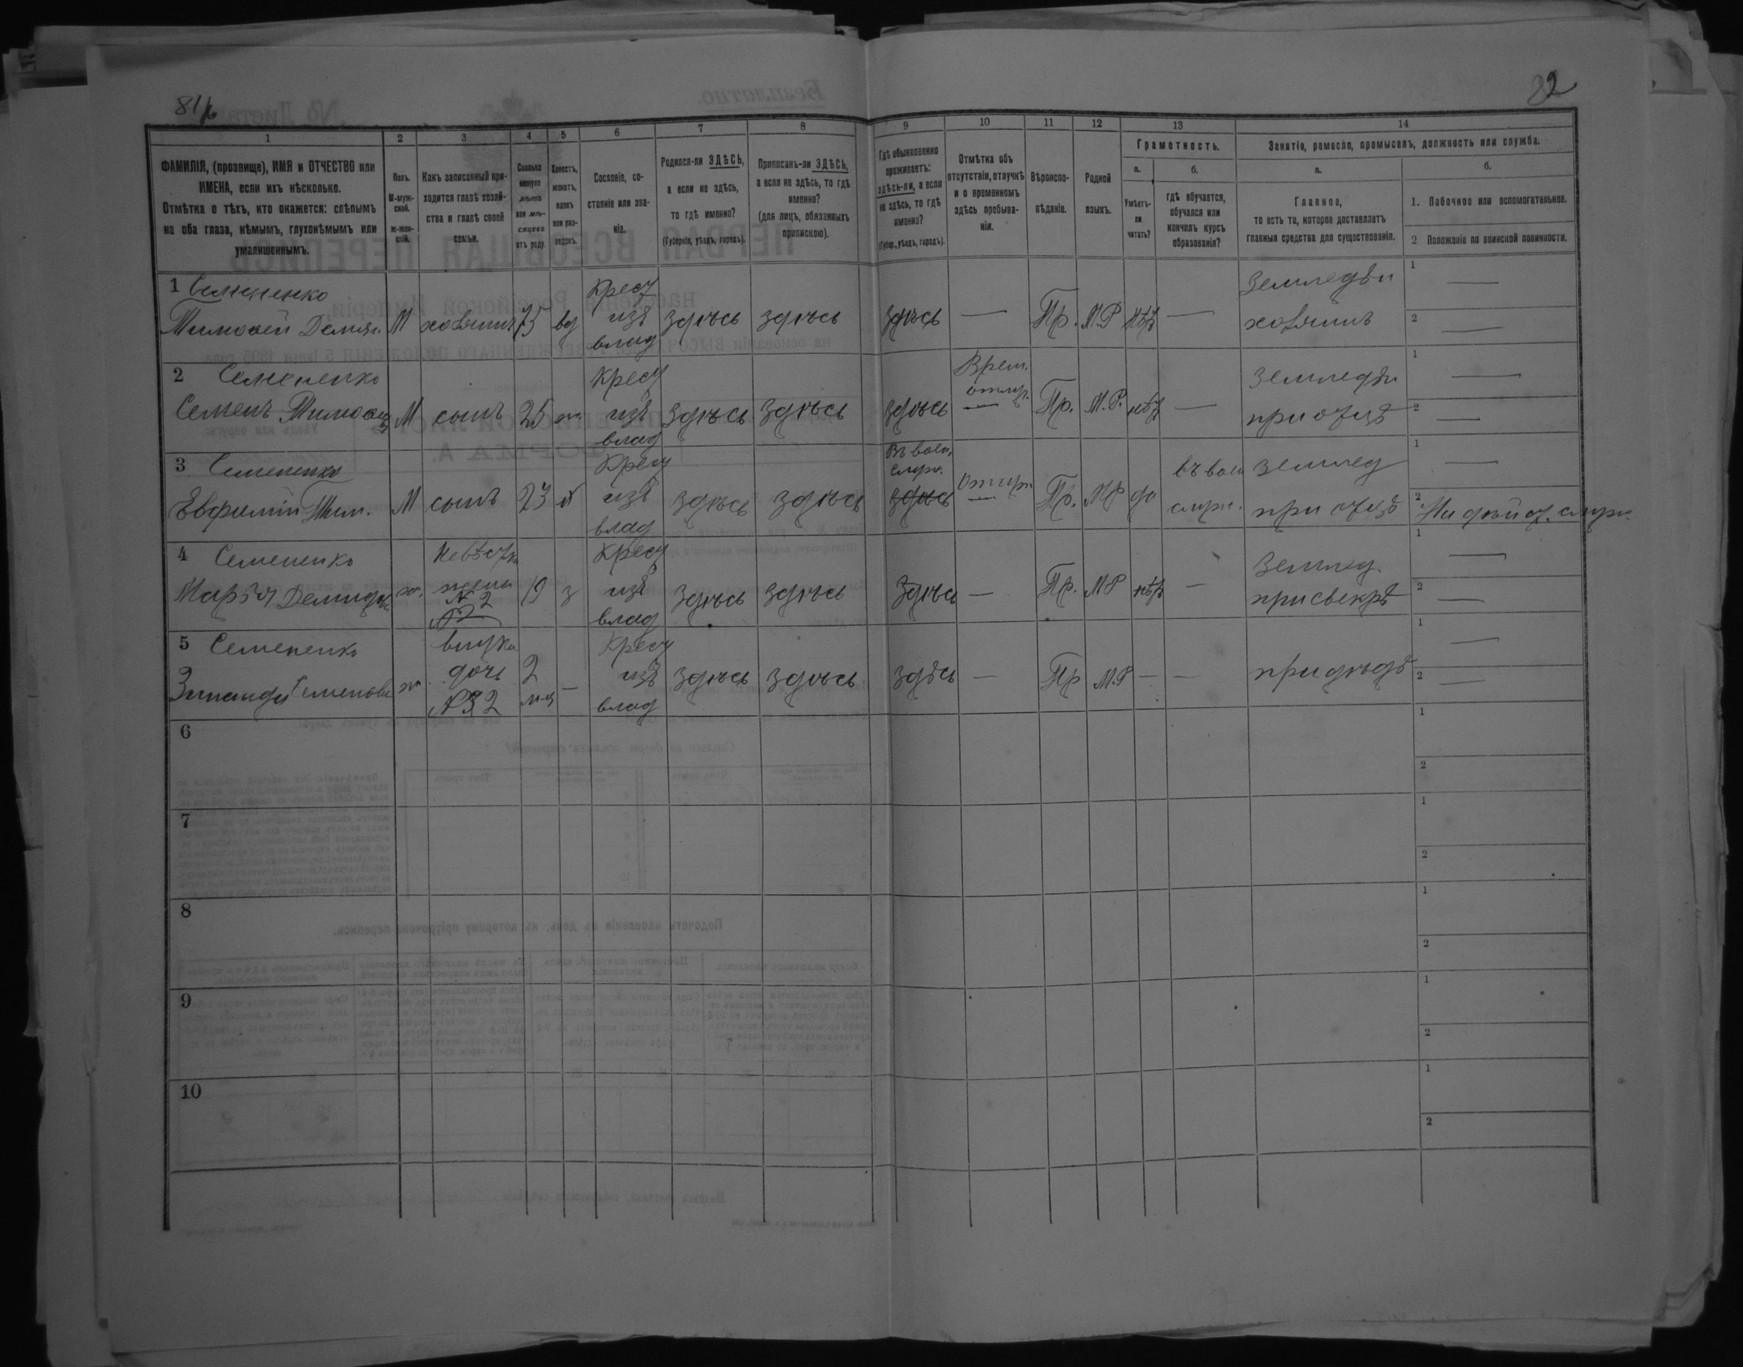 82
1 2 3 4 5 6 7 8 9 10 11 12 13 14
ФАМИЛІЯ, (прозвище), ИМЯ и ОТЧЕСТВО или
ИМЕНА, если ихъ нѣсколько.
Отмѣтка о тѣхъ, кто окажется: слѣпымъ
на оба глаза, нѣмымъ, глухонѣмымъ или
умалишеннымъ.
Полъ.
М-муж-
ской.
Ж-жен-
скій.
Какъ записанный при-
ходится главѣ хозяй-
ства и главѣ своей
семьи.
Сколько
минуло
лѣтъ
или мѣ-
сяцевъ
отъ роду.
Холостъ,
женатъ,
вдовъ
или раз-
веденъ.
Сословіе, со-
стояніе или зва-
ніе.
Родился-ли ЗДѢСЬ,
а если не здѣсь,
то гдѣ именно?
(Губернія, уѣздъ, городъ).
Приписанъ-ли ЗДѢСЬ,
а если не здѣсь, то гдѣ
именно?
(для лицъ, обязанныхъ
припискою).
Гдѣ обыкновенно
проживаетъ:
здѣсь-ли, а если
не здѣсь, то гдѣ
именно?
(Губер., уѣздъ, городъ).
Отмѣтка объ
отсутствіи, отлучкѣ
и о временномъ
здѣсь пребыва-
ніи.
Вѣроиспо-
вѣданіе.
Родной
языкъ.
Грамотность.
а.
Умѣетъ-
ли
читать?
б.
гдѣ обучается,
обучался или
кончилъ курсъ
образованія?
Занятіе, ремесло, промыселъ, должность или служба.
а.
Главное,
то есть то, которое доставляетъ
главныя средства для существованія.
б.
1. Побочное или вспомогательное.
2 Положеніе по воинской повинности.
1 Семененко
Тимофей Демид.
М
хозяинъ
75
вд
Крест
изъ
влад
здѣсь
здѣсь
здѣсь
—
Пр.
М Р
нѣт
—
Земледѣл
хозяинъ
1 —
2 —
2 Семененко
Семенъ Тимофе
М
сынъ
25
Крест
изъ
влад
здѣсь
здѣсь
здѣсь
Врем.
отлуч.
Пр.
М.Р.
нѣт
—
Земледѣл
при отцѣ
1 —
2 —
3 Семененко
Евфимій Тим.
М
сынъ
23
Крест
изъ
влад
здѣсь
здѣсь
Въ воен.
служ.
здѣсь
Пр.
М Р
да
въ воен
служ.
Землед
при отцѣ
1 —
2 На дѣйст. служ.
4 Семененко
Марѳа Демидов
ж.
Невѣстка
жена
№ 2
19
з
Крест
изъ
влад
здѣсь
здѣсь
Здѣсь
—
Пр.
М Р
нѣт
—
Землед.
при свекрѣ
1 —
2 —
5 Семененко
Зинаида Семенова
ж
внучка
дочь
№ 2
2
м-ц
—
Крест
изъ
влад
здѣсь
здѣсь
здѣсь
—
Пр
М.Р
—
—
при дѣдѣ
1 —
2 —
6
1
2
7
1
2
8
1
2
9
1
2
10
1
2